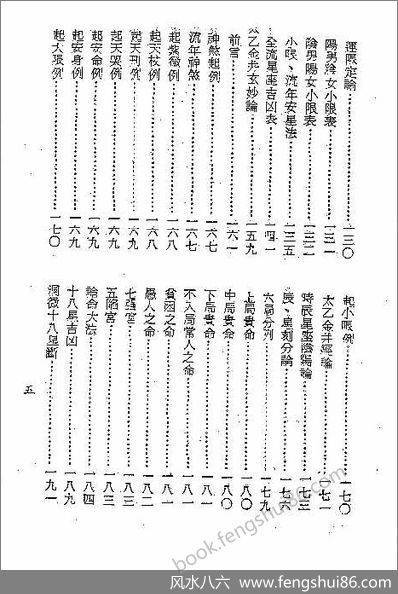 運限定論⋯⋯一三〇
陽男陰女小限表⋯⋯一三一
陰男陽女小限表⋯⋯一三二
小限、流年安星法⋯⋯一三五
全流星座吉凶表⋯⋯一四一
太乙金井玄妙論⋯⋯一五九
前言⋯⋯一六一
神煞起例⋯⋯一六七
流年神煞⋯⋯一六七
起紫微例⋯⋯一六八
起天杖例⋯⋯一六八
起天刑例⋯⋯一六九
起天哭例⋯⋯一六九
起安命例⋯⋯一六九
起安身例⋯⋯一六九
起大限例⋯⋯一七〇
起小限例⋯⋯一七〇
太乙金井經論⋯⋯一七一
時辰星座陰陽論⋯⋯一七三
辰、星刻分論⋯⋯一七六
六局分列⋯⋯一七九
上局貴命⋯⋯一八〇
中局貴命⋯⋯一八〇
下局貴命⋯⋯一八一
不入局常人之命⋯⋯一八一
貧困之命⋯⋯一八一
愚人之命⋯⋯一八二
七強宮⋯⋯一八三
五陷宮⋯⋯一八三
論命大法⋯⋯一八四
十八星吉凶⋯⋯一八九
洞微十八星斷⋯⋯一九一
五
book.fengshui86.com
风水八六 - www.fengshui86.com